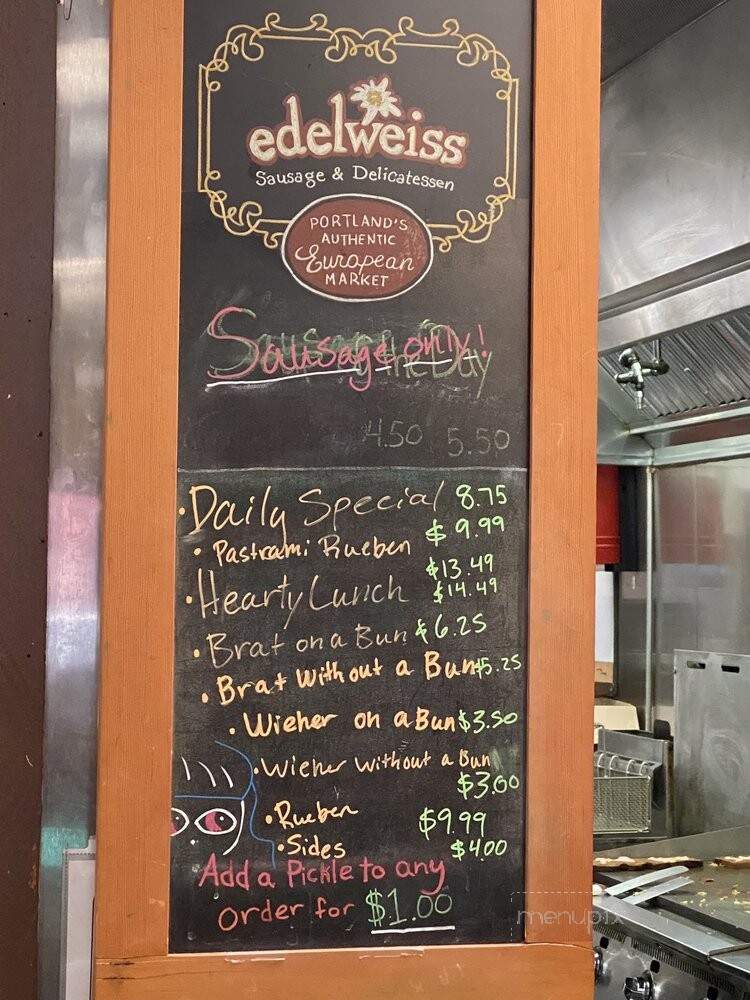 edelweiss
Sausage & Delicatessen
PORTLAND'S
AUTHENTIC
European
MARKET
Sausage only!
the Day
4.50 5.50
• Daily Special 8.75
• Pastrami Rueben $ 9.99
$13.49
• Hearty Lunch $14.49
• Brat on a Bun $6.25
• Brat without a Bun $5.25
• Wiener on a Bun $3.50
• Wiener without a Bun
$3.00
• Rueben $9.99
• Sides $4.00
Add a Pickle to any
order for $1.00
menupix